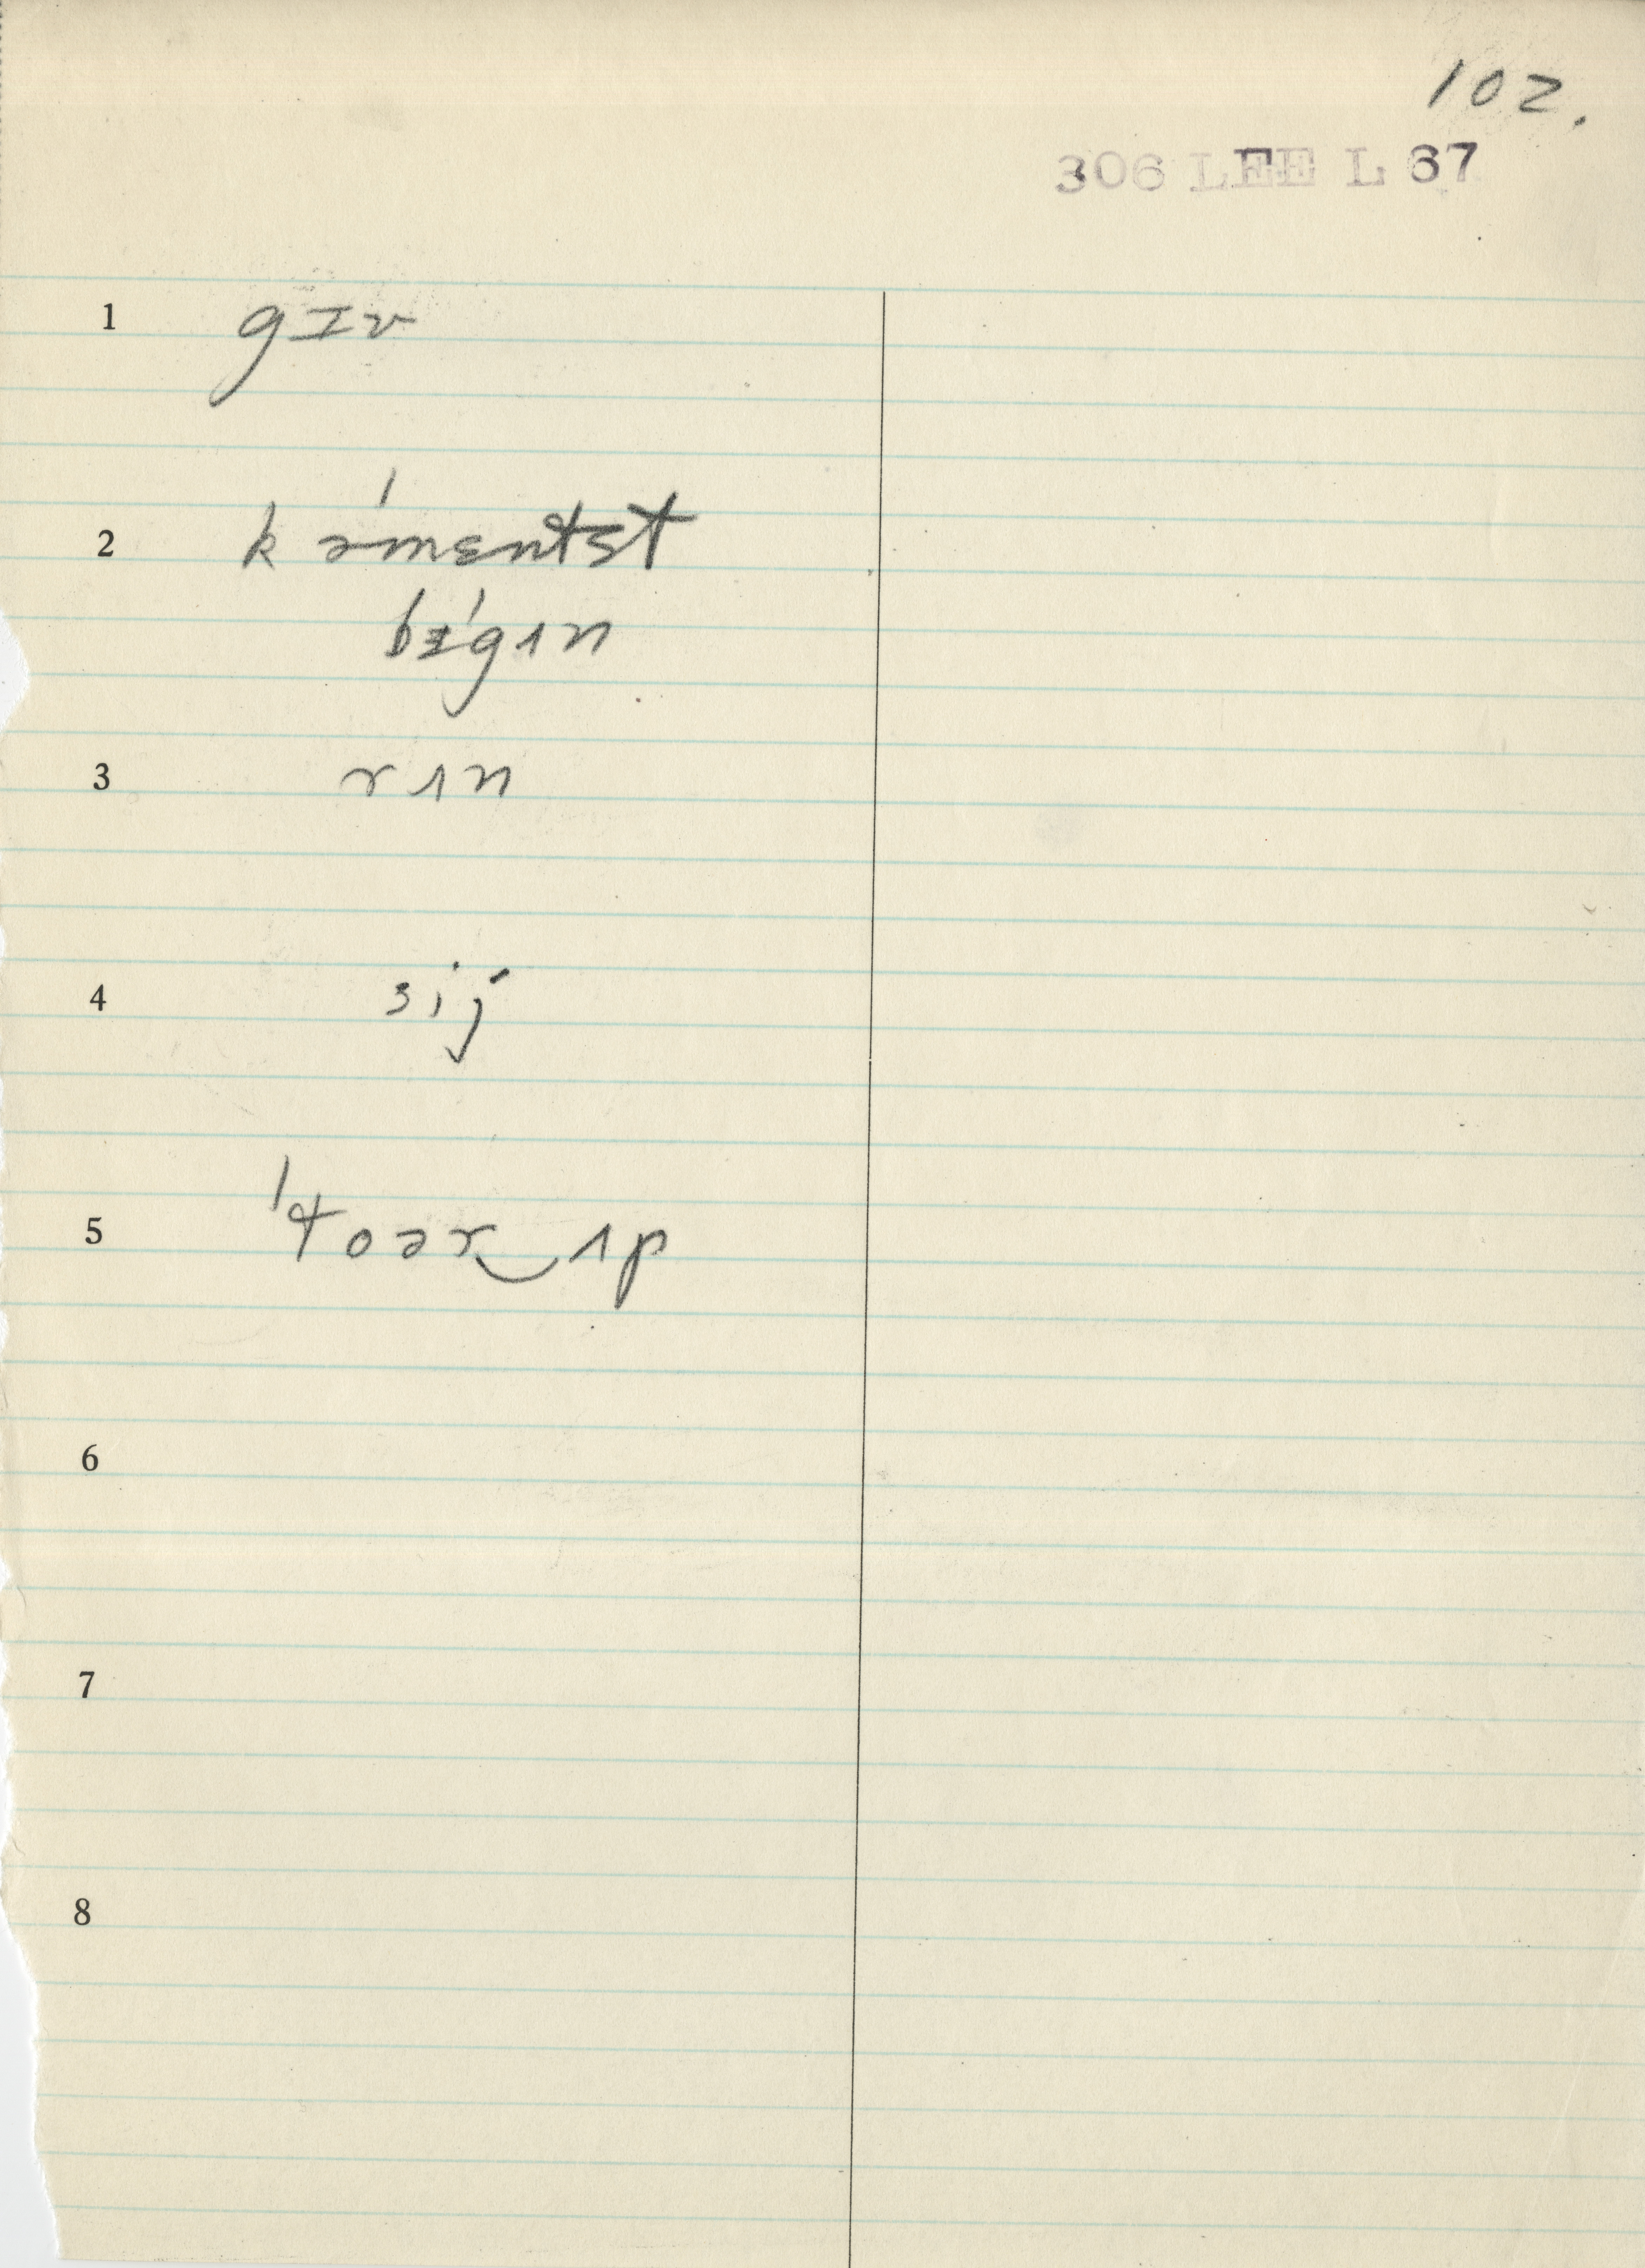 102.
306 LEE L 67
1 gɪv
2 kə'mɛntst
bɪ'gɪn
3 rɪn
4 sij
5 'toər‿ɪp
6
7
8